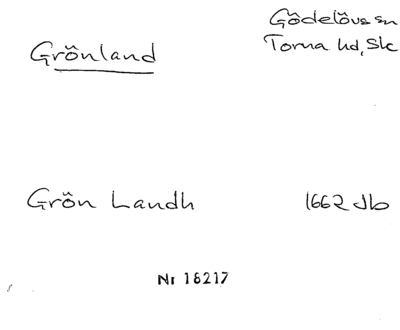 Grönland
Gödelövs sn
Torna hd, Sk
Grön Landh 1662 Jb
Nr 18217